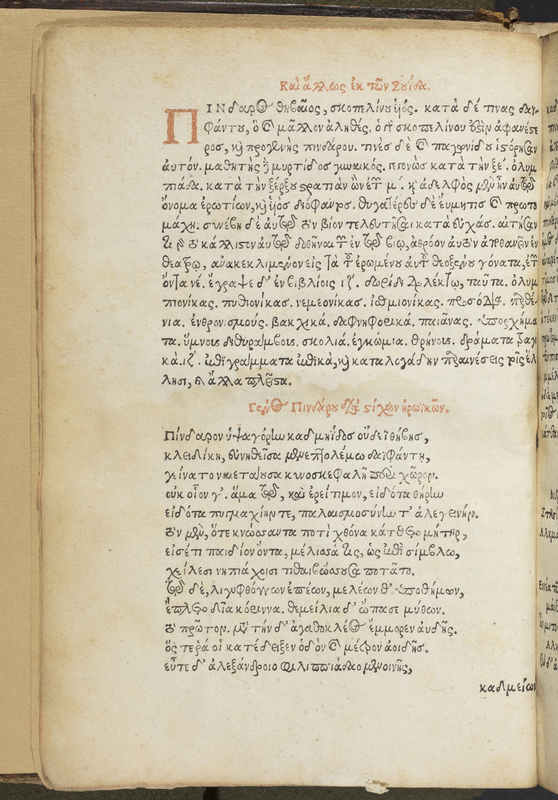 Καὶ ἄλλως ἐκ τῶν Σουίδα.
ΠΙΝδαρος θηβαῖος, σκοπελίνου υἱός. κατὰ δέ τινας δαϊ-
φάντου, ὃ καὶ μᾶλλον ἀληθές. ὁ γὰρ σκοπελίνου ἐστὶν ἀφανέστε
ρος, καὶ προσγενὴς πινδάρου. τινὲς δὲ καὶ παγωνίδου ἱστόρησαν
αὐτόν. μαθητὴς δὲ μυρτίδος γυναικός. γεγονὼς κατὰ τὴν ξε΄. ὀλυμ
πιάδα. κατὰ τὴν ξέρξου στρατιὰν ὢν ἐτῶν μ΄. καὶ ἀδελφὸς μὲν ἦν αὐτῷ
ὄνομα ἐρωτίων, καὶ υἱὸς διόφαντος. θυγατέρες δὲ εὔμητις καὶ πρωτο
μάχη. συνέβη δὲ αὐτῷ τοῦ βίου τελευτῆσαι κατ' εὐχάσ. αἰτήσαν
τι γὰρ τὸ κάλλιστον αὐτῷ δοθῆναι τῶν ἐν τῷ βίῳ, ἀθρόον αὐτὸν ἀποθανεῖν ἐν
θεάτρῳ, ἀνακεκλιμένον εἰς τὰ τοῦ ἐρωμένου αὐτοῦ θεοξένου γόνατα, ἐτῶν
ὄντα νέ. ἔγραψε δ' ἐν βιβλίοις ιζ΄. δωρίδι διαλέκτῳ, ταῦτα. ὀλυμ
πιονίκας. πυθιονίκας. νεμεονίκασ. ἰσθμιονίκας. προσόδια. παρθέ
νια. ἐνθρονισμούς. βακχικά. δαφνηφορικά. παιᾶνας. ὑποσχήμα
τα. ὕμνους διθυράμβους. σκολιά. ἐγκώμια. θρήνους. δράματα τραγι
κὰ.ιζ΄. ἐπιγράμματα ἐπικά, καὶ καταλογάδην παραινέσεις τοῖς ἕλ
λησι, καὶ ἄλλα πλεῖστα.
Γένος Πινδάρου διὰ στίχων ἡρωϊκῶν.
Πίνδαρον ὑψαγόρην καδμηίδος οὔδεϊ θήβης,
κλειδίκη, εὐνηθεῖσα μενεπτολέμω δαϊφάντη,
γείνατο ναιετάουσα κυνοσκεφαλῆς παρὰ χῶρον.
οὐκ οἶον γ'. ἅμα τῷ, καὶ ἐρείτιμον, εἰδότα θήρην
εἰδότα πυγμαχίην τε, παλαισμοσύνην τ' ἀλεγεινήν.
τὸν μὲν, ὅτε κνώσσοντα ποτὶ χθόνα κάτθετο μήτηρ,
εἰσέτι παιδίον ὄντα, μέλισσά τις, ὡς ἐπὶ σίμβλω,
χείλεσι νηπιάχοισι τιθαιβώσσουσα ποτᾶτο.
τῷ δὲ, λιγυφθόγγων ἐπέων, μελέων θ' ὑποθήμων,
ἔπλετο δῖα κόριννα. θεμείλια δ' ὤπασε μύθων.
τὸ πρῶτον. μετὰ τὴν δ' ἀγαθοκλέος ἔμμορεν αὐδῆς.
ὅς τέ ῥά οἱ κατέδειξεν ὁδὸν καὶ μέτρον ἀοιδῆς.
εὖτε δ' ἀλεξάνδροιο φιλιππιάδαο μενοινῆς,
καδμείων